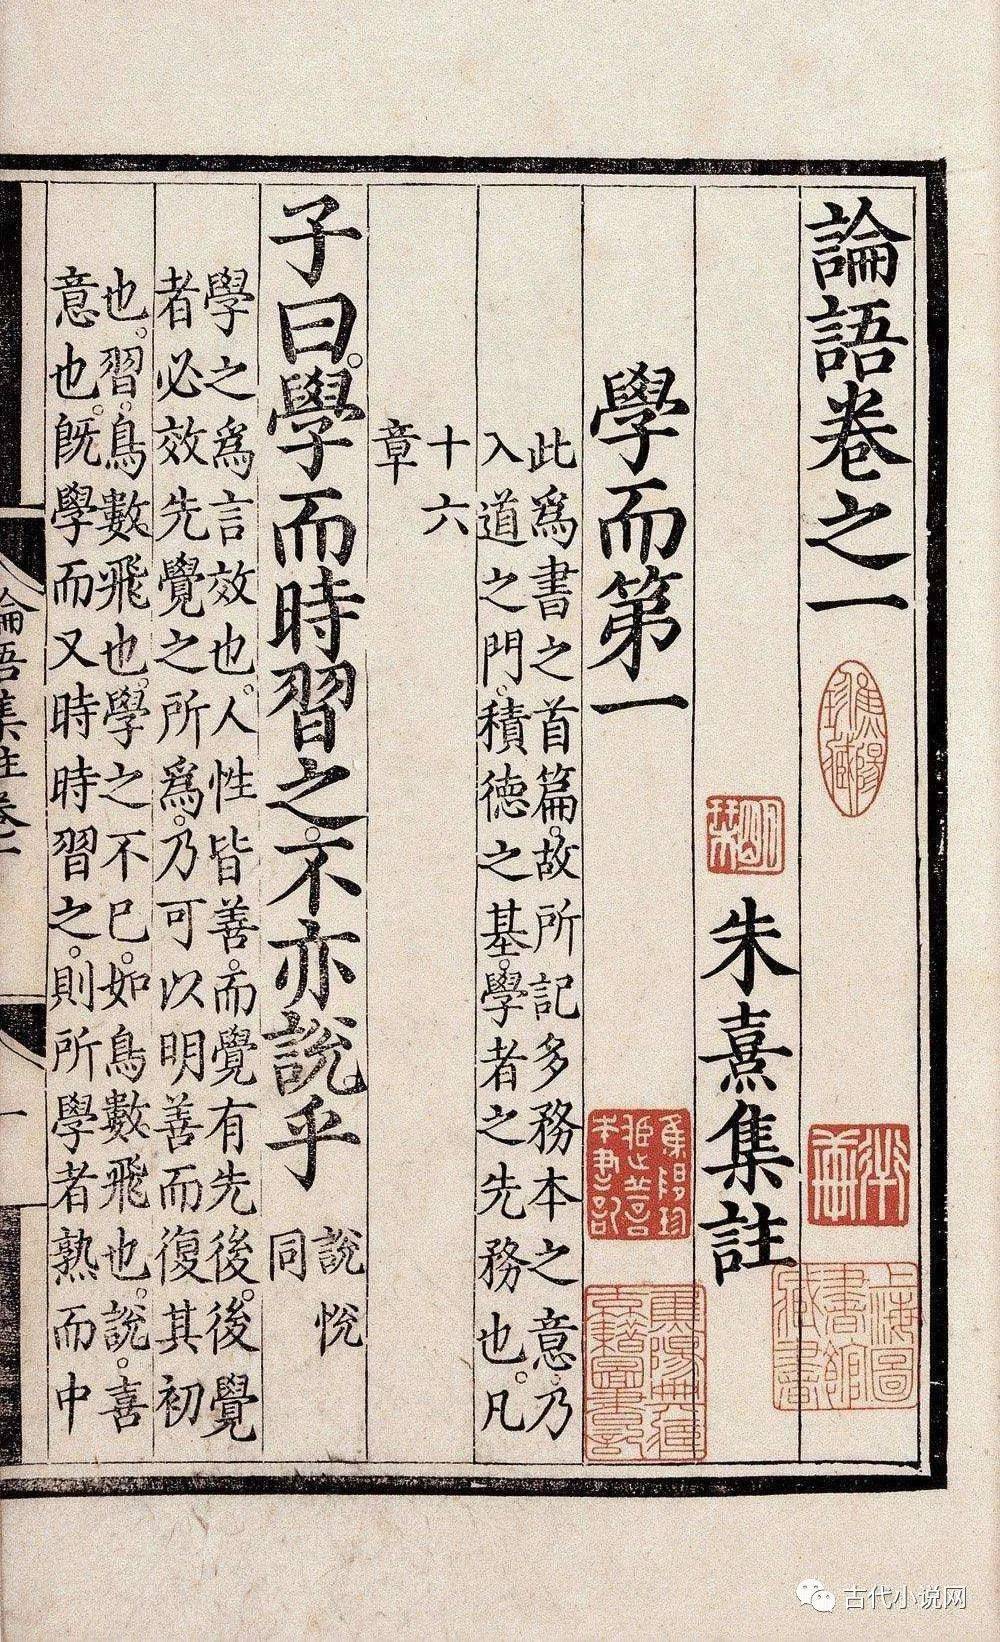 論語卷之一
上海圖書館藏書
朱熹集註
學而第一
此爲書之首篇。故所記多務本之意。乃
入道之門。積德之基。學者之先務也。凡
十六
章
子曰。學而時習之。不亦說乎
說悅
同
學之爲言效也。人性皆善。而覺有先後。後覺
者必效先覺之所爲。乃可以明善而復其初
也。習。鳥數飛也。學之不已。如鳥數飛也。說。喜
意也。旣學而又時時習之。則所學者熟而中
論語集註卷一
一
古代小说网